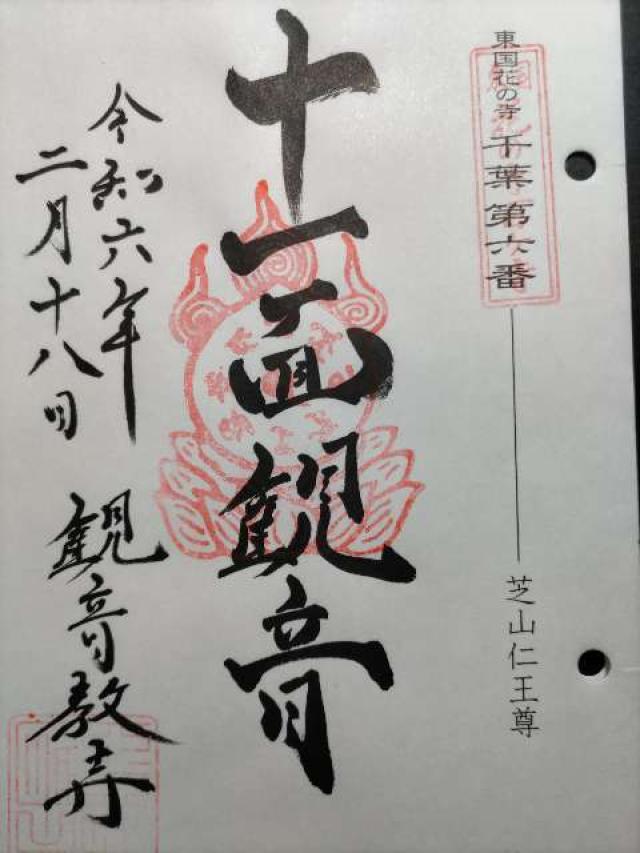 東国花の寺 千葉第六番
芝山仁王尊
十一面観音
令和六年
二月十八日
観音教寺